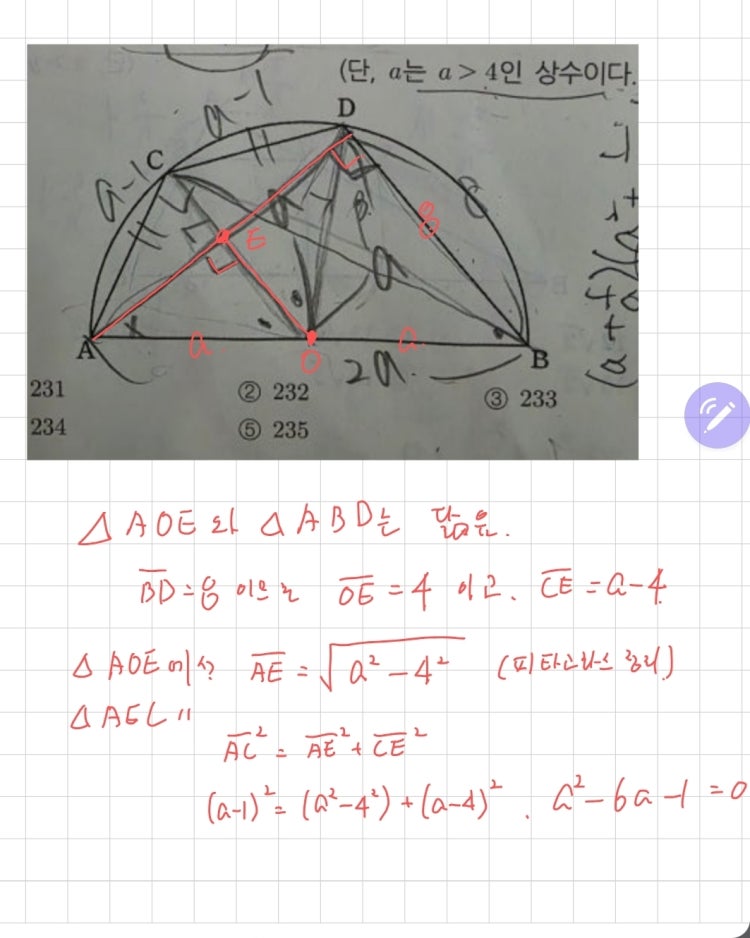 (단, a는 a > 4인 상수이다.
a-1
D
C
a-1
E
8
8
a
A
a
O
a
B
2a
231
② 232
③ 233
234
⑤ 235
△AOE와 △ABD는 닮음.
BD = 8 이므로 OE = 4 이고. CE = a-4
△AOE에서 AE = √a²-4² (피타고라스 정리)
△AEC "
AC² = AE² + CE²
(a-1)² = (a²-4²) + (a-4)² . a²-6a-1 = 0